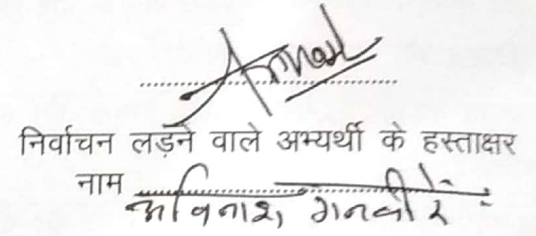 निर्वाचन लड़ने वाले अभ्यर्थी के हस्ताक्षर
नाम अविनाश गनवीर